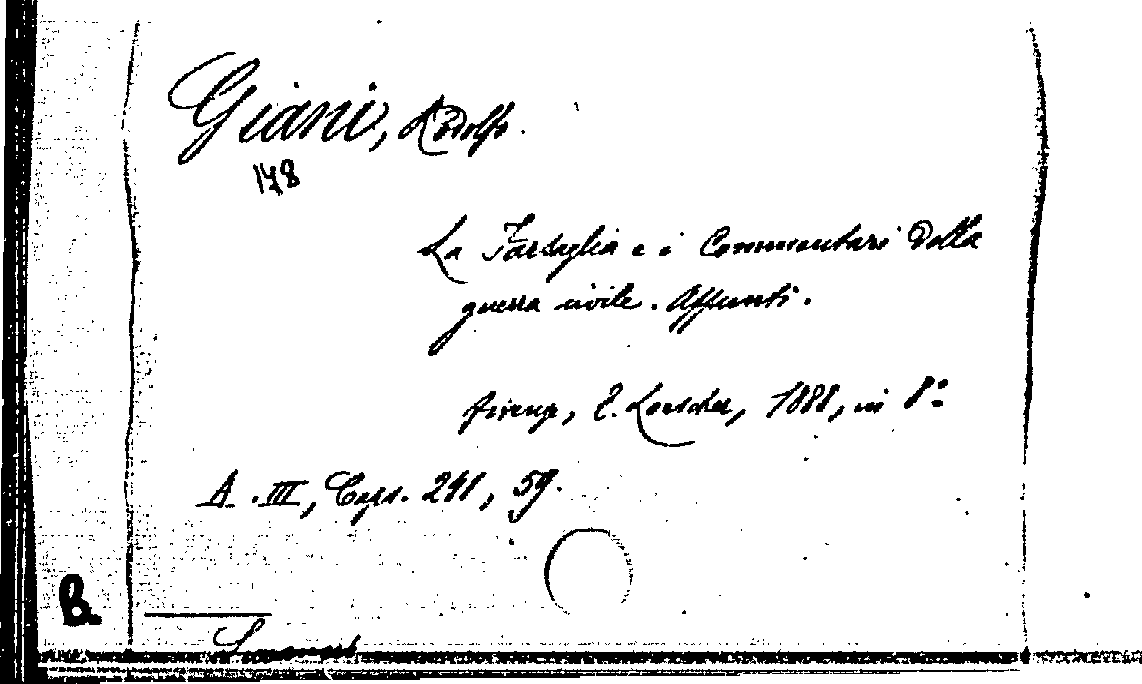 Giani, Rodolfo.
178
La Farsaglia e i Commentari della
guerra civile. Appunti.
Firenze, E. Loescher, 1888, in 8º
A. III, Caps. 241, 59.
B.